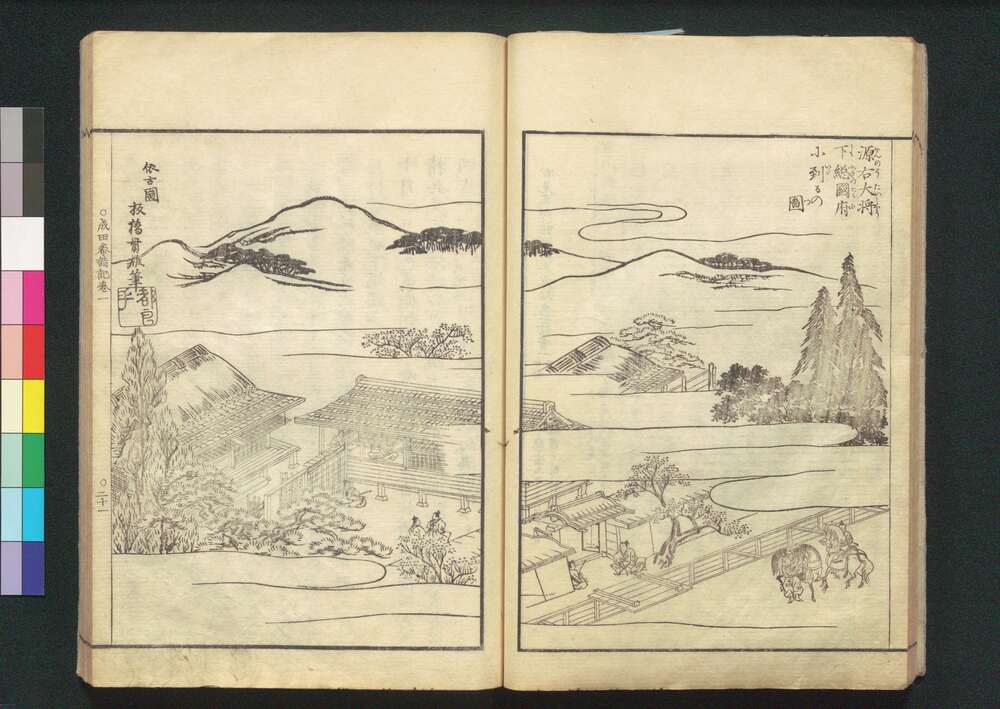 源右大将
下総國府
に到るの
圖
依古圖
板橋貫雄筆
成田参詣記巻一
二十一